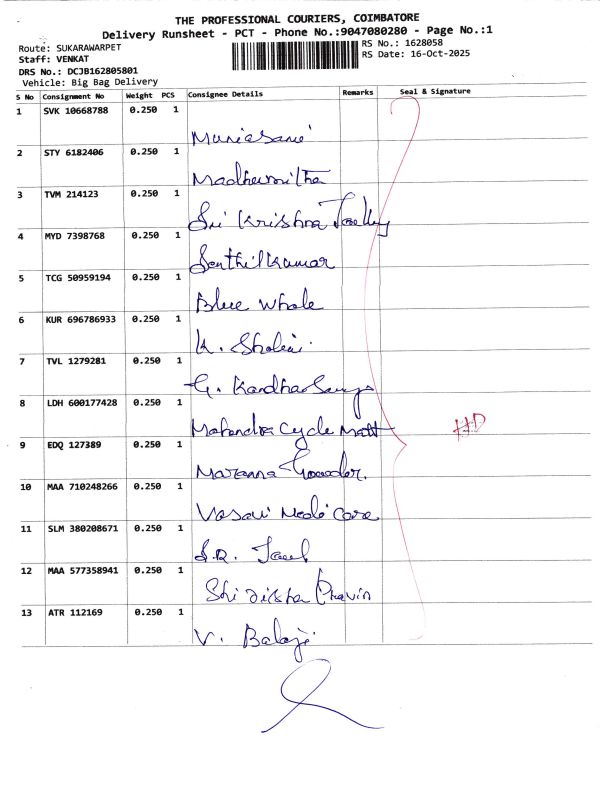 THE PROFESSIONAL COURIERS, COIMBATORE
Delivery Runsheet - PCT - Phone No.:9047080280 - Page No.:1
Route: SUKARAWARPET
RS No.: 1628058
Staff: VENKAT
RS Date: 16-Oct-2025
DRS No.: DCJB162805801
Vehicle: Big Bag Delivery
S No Consignment No Weight PCS Consignee Details Remarks Seal & Signature
1 SVK 10668788 0.250 1
2 STY 6182406 0.250 1
Madhumitha
3 TVM 214123 0.250 1
Sri Krishna
4 MYD 7398768 0.250 1
Senthilkumar
5 TCG 50959194 0.250 1
Blue Whale
6 KUR 696786933 0.250 1
K. Shalini
7 TVL 1279281 0.250 1
G. Kandhasamy
8 LDH 600177428 0.250 1
Mahendra Cycle Matt
HD
9 EDQ 127389 0.250 1
Maranna Gowder.
10 MAA 710248266 0.250 1
Vasavi Medi Care
11 SLM 380208671 0.250 1
S.R.
12 MAA 577358941 0.250 1
Shi Disha Pravin
13 ATR 112169 0.250 1
V. Balaji